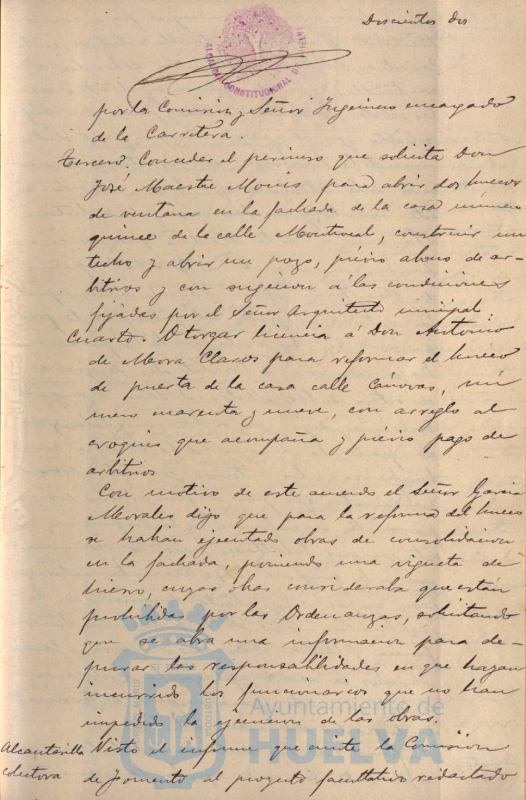 Doscientos dos
ALCALDIA CONSTITUCIONAL DE
por la Comision y Señor Ingeniero encargado
de la Carretera.
Tercero. Conceder el permiso que solicita Don
José Maestre Moins para abrir dos huecos
de ventana en la fachada de la casa número
quince de la calle Montroval, construir un
techo y abrir un pozo, prévio abono de ar-
bitrios y con sugecion á las condiciones
fijadas por el Señor Arquitecto
Cuarto. Otorgar licencia á Don Antonio
de Mora Claros para reformar el hueco
de puerta de la casa calle Cánovas, nú
mero cuarenta y nueve, con arreglo al
croquis que acompaña y prévio pago de
arbitrios
Con motivo de este acuerdo el Señor Garcia
Morales dijo que para la reforma del hueco
se habian ejecutado obras de consolidacion
en la fachada, poniendo una vigueta de
hierro, cuyas obras consideraba que están
prohibidas por las Ordenanzas, solicitando
que se abra una informacion para de-
purar las responsabilidades en que hayan
incurrido los funcionarios que no han
impedido la ejecucion de las obras.
Ayuntamiento de
HUELVA
Alcantarilla
colectora
Visto el informe que emite la Comision
de fomento al proyecto facultativo redactado